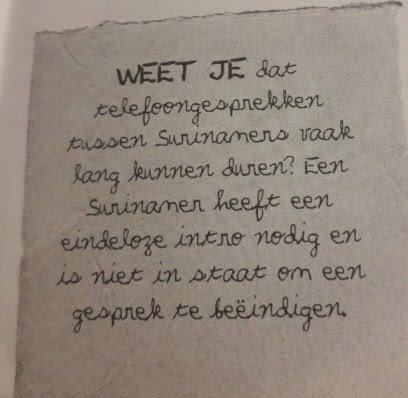 WEET JE dat
telefoongesprekken
tussen Surinamers vaak
lang kunnen duren? Een
Surinamer heeft een
eindeloze intro nodig en
is niet in staat om een
gesprek te beëindigen.